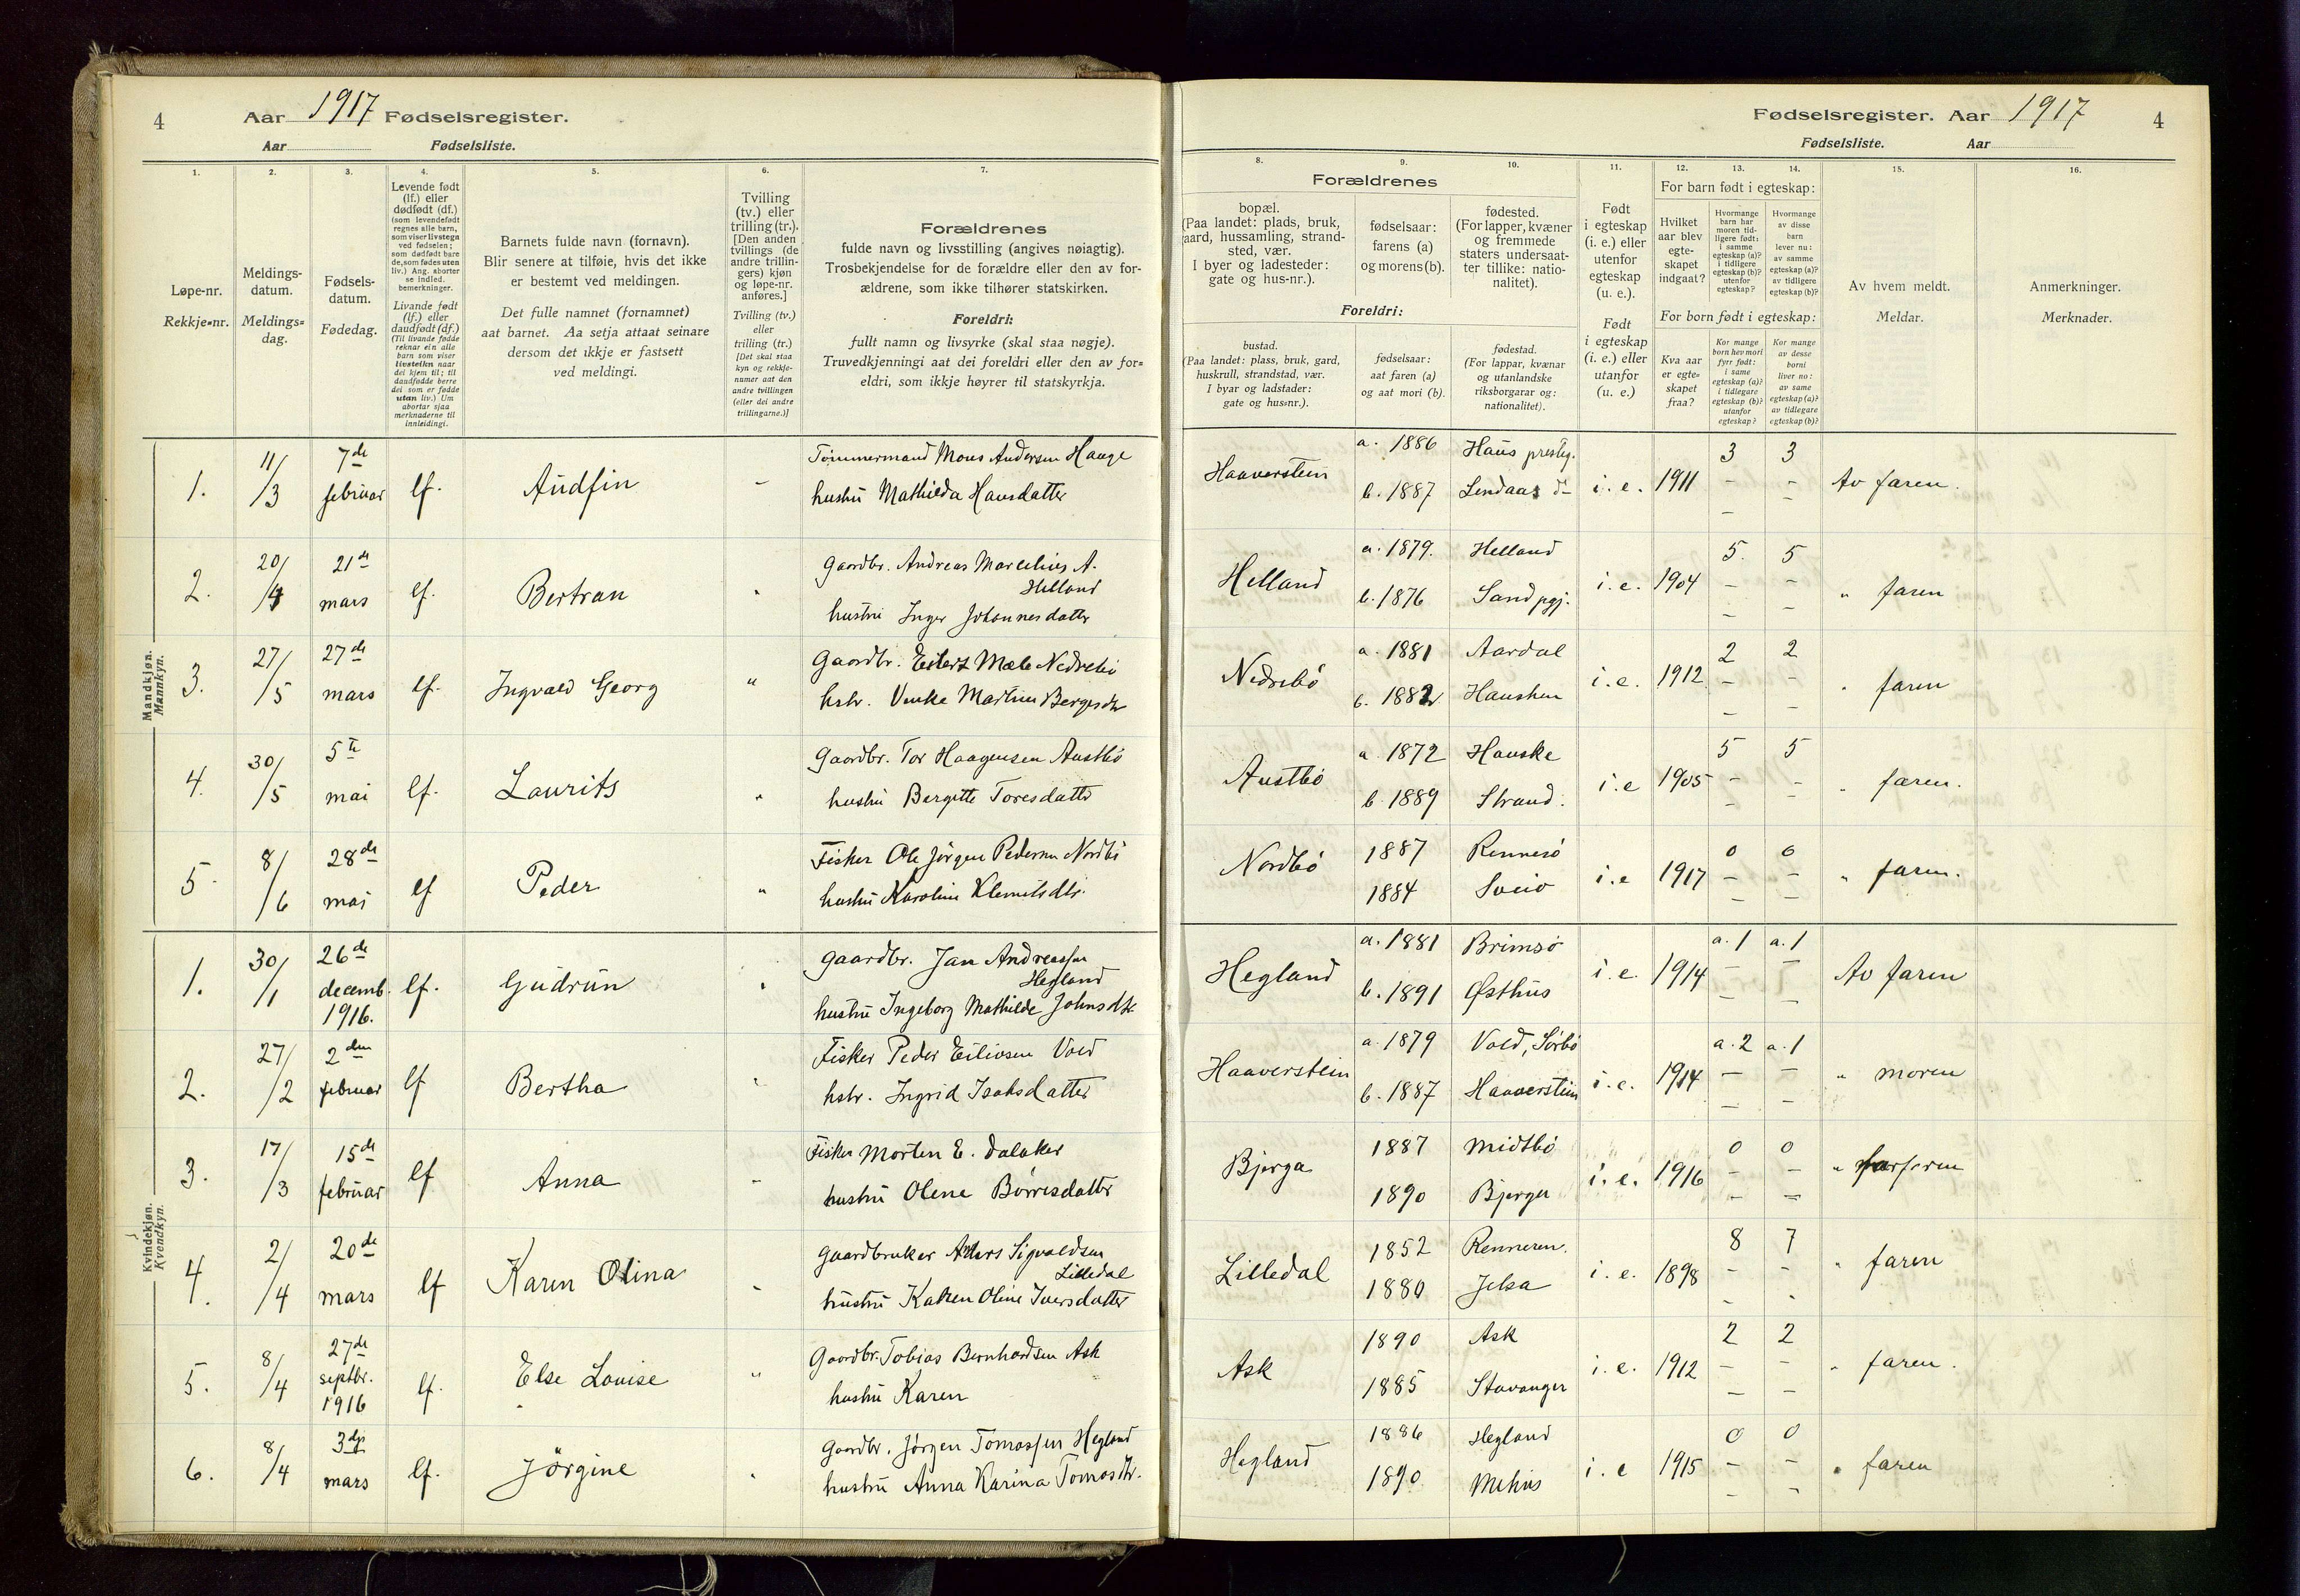 4
Aar 1917 Fødselsregister.
Aar Fødselsliste.
1.
2.
3.
4.
5.
6.
7.
Løpe-nr.
Rekkje-nr.
Meldings-
datum.
Meldings-
dag.
Fødsels-
datum.
Fødedag.
Levende født
(lf.) eller
dødfødt (df.)
(som levendefødt
regnes alle barn,
som viser livstegn
ved fødselen;
som dødfødt bare
de, som fødes uten
liv.) Ang. aborter
se indled.
bemerkninger.
Livande født
(lf.) eller
daudfødt (df.)
(Til livande fødde
reknar ein alle
barn som viser
livsteikn naar
dei kjem til; til
daudfødde berre
dei som er fødde
utan liv.) Um
abortar sjaa
merknaderne til
innleidingi.
Barnets fulde navn (fornavn).
Blir senere at tilføie, hvis det ikke
er bestemt ved meldingen.
Det fulle namnet (fornamnet)
aat barnet. Aa setja attaat seinare
dersom det ikkje er fastsett
ved meldingi.
Tvilling
(tv.) eller
trilling (tr.).
[Den anden
tvillings (de
andre trillin-
gers) kjøn
og løpe-nr.
anføres.]
Tvilling (tv.)
eller
trilling (tr.)
[Det skal staa
kyn og rekkje-
numer aat den
andre tvillingen
(eller dei andre
trillingarne.)]
Forældrenes
fulde navn og livsstilling (angives nøiagtig).
Trosbekjendelse for de forældre eller den av for-
ældrene, som ikke tilhører statskirken.
Foreldri:
fullt namn og livsyrke (skal staa nøgje).
Truvedkjenningi aat dei foreldri eller den av for-
eldri, som ikkje høyrer til statskyrkja.
Mandkjøn.
Mannkyn.
1. 11/3 7de februar lf. Audfin
Tømmermand Mons Andersen Hauge
hustru Mathilda Hansdatter
2. 20/4 21de mars lf. Bertran "
Gaardbr. Andreas Marselius A.
Helland
hustru Inger Johannesdatter
3. 27/5 27de mars lf. Ingvald Georg "
Gaardbr. Eilert Mæle Nedrebø
hstr.
4. 30/5 5te mai lf. Laurits "
Gaardbr. Tor Haagensen Austbø
hustru Bergitte Toresdatter
5. 8/6 28de mai lf Peder "
Fisker Ole Jörgen Pedersen Nordbø
hustru Karoline Klemetsdtr.
Kvindekjøn.
Kvendkyn.
1. 30/1 26de decemb. 1916. lf. Gudrun "
gaardbr. Jan Andreassen
Hegland
hustru Ingeborg Mathilde Johnsdtr.
2. 27/2 2den februar lf Bertha "
Fisker Peder Eilivsen Vold
hstr. Ingrid Isaksdatter
3. 17/3 15de februar lf Anna "
Fisker Morten E. Dalaker
hustru Olene Børresdatter
4. 2/4 20de mars lf Karen Olina "
gaardbruker Sigvaldsen
Lilledal
hustru Oline Iversdatter
5. 8/4 27de septbr. 1916 lf. Else Louise "
Gaardbr. Tobias Bernhardsen Ask
hustru Karen
6. 8/4 3dje mars lf. Jörgine "
Gaardbr. Jörgen Tomassen Hegland
hustru Anna Karina Tomasdtr.
Fødselsregister. Aar 1917
4
Fødselsliste. Aar
8.
9.
10.
11.
12.
13.
14.
15.
16.
Forældrenes
bopæl.
(Paa landet: plads, bruk,
gaard, hussamling, strand-
sted, vær.
I byer og ladesteder:
gate og hus-nr.).
fødselsaar:
farens (a)
og morens (b).
fødested.
(For lapper, kvæner
og fremmede
staters undersaat-
ter tillike: natio-
nalitet).
Foreldri:
bustad.
(Paa landet: plass, bruk, gard,
huskrull, strandstad, vær.
I byar og ladstader:
gate og hus-nr.).
fødselsaar:
aat faren (a)
og aat mori (b).
fødestad.
(For lappar, kvænar
og utanlandske
riksborgarar og:
nationalitet).
Født
i egteskap
(i. e.) eller
utenfor
egteskap
(u. e.).
Født
i egteskap
(i. e.) eller
utanfor
(u. e.)
For barn født i egteskap:
Hvilket
aar blev
egte-
skapet
indgaat?
Hvormange
barn har
moren tid-
ligere født:
i samme
egteskap (a)?
i tidligere
egteskap (b)?
utenfor
egteskap?
Hvormange
av disse
barn
lever nu:
av samme
egteskap (a)?
av tidligere
egteskap (b)?
For born født i egteskap:
Kva aar
er egte-
skapet
fraa?
Kor mange
born hev mori
fyrr født:
i same
egteskap (a)?
i tidlegare
egteskap (b)?
utanfor
egteskap?
Kor mange
av desse
borni
liver no:
av same
egteskap (a)?
av tidlegare
egteskap (b)?
Av hvem meldt.
Meldar.
Anmerkninger.
Merknader.
Haaverstein a. 1886 Haus prestg. i. e. 1911 3 3 Av faren.
b. 1887 Lindaas do
Helland a. 1879. Helland i. e. 1904 5. 5 " faren
b. 1876 Sand pgj.
Nedrebø a. 1881 Aardal i. e. 1912 2 2 " faren
b. 1882
Austbø a. 1872 Hauske i. e 1905 5 5 " faren.
b. 1889 Strand.
Nordbø 1887 Rennesø i. e 1917 0 0 " faren.
1884 Sveio
Hegland a. 1881 Brimsø i. e. 1914 a. 1 a. 1 Av faren
b. 1891 Østhus
Haaverstein a. 1879 Vold, Sørbø i. e. 1914 a. 2 a. 1 " moren
b. 1887 Haaverstein
Bjerga 1887 Midtbø i. e. 1916 0 0 "
1890 Bjerga
Lilledal 1852 i. e. 1898 8 7 " faren
1880 Jelsa
Ask 1890 Ask i. e. 1912 2 2 " faren.
1885 Stavanger
Hegland 1886 Hegland i. e 1915 0 0 " faren
1890